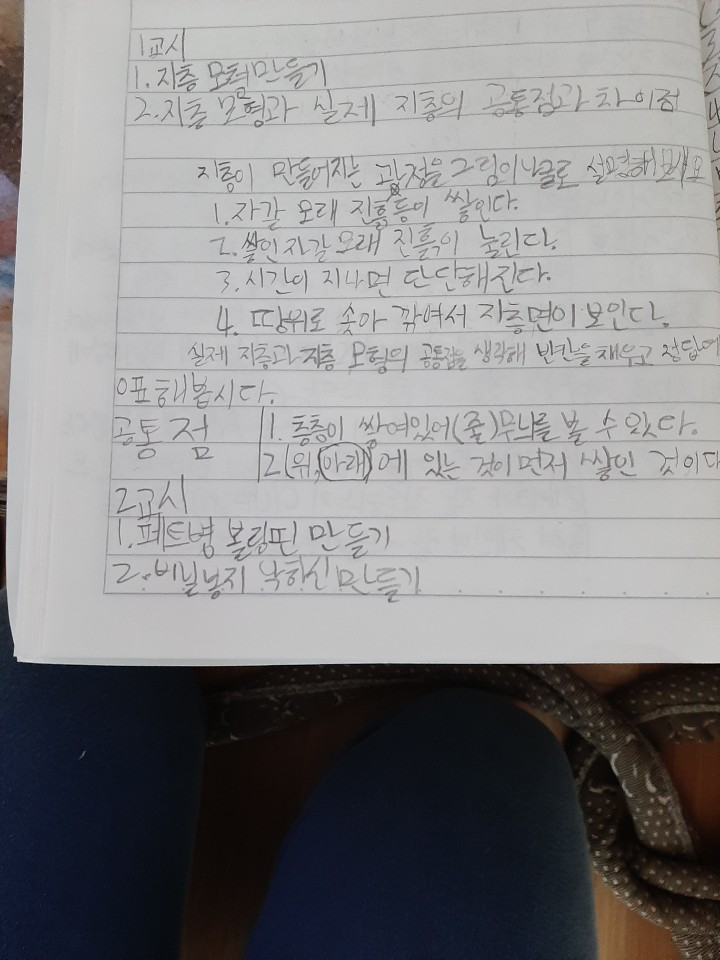 1교시
1. 지층 모형 만들기
2. 지층 모형과 실제 지층의 공통점과 차이점
지층이 만들어지는 과정을 그림이나 글로 설명해 보세요
1. 자갈 모래 진흙 등이 쌓인다.
2. 쌓인 자갈 모래 진흙이 눌린다.
3. 시간이 지나면 단단해진다.
4. 땅위로 솟아 깎여서 지층면이 보인다.
실제 지층과 지층 모형의 공통점을 생각해 빈칸을 채우고 정답에
O표 해봅시다.
공통점 1. 층층이 쌓여있어 (줄)무늬를 볼 수 있다.
2. (위, 아래)에 있는 것이 먼저 쌓인 것이다
2교시
1. 페트병 볼링핀 만들기
2. 비닐봉지 낙하산 만들기